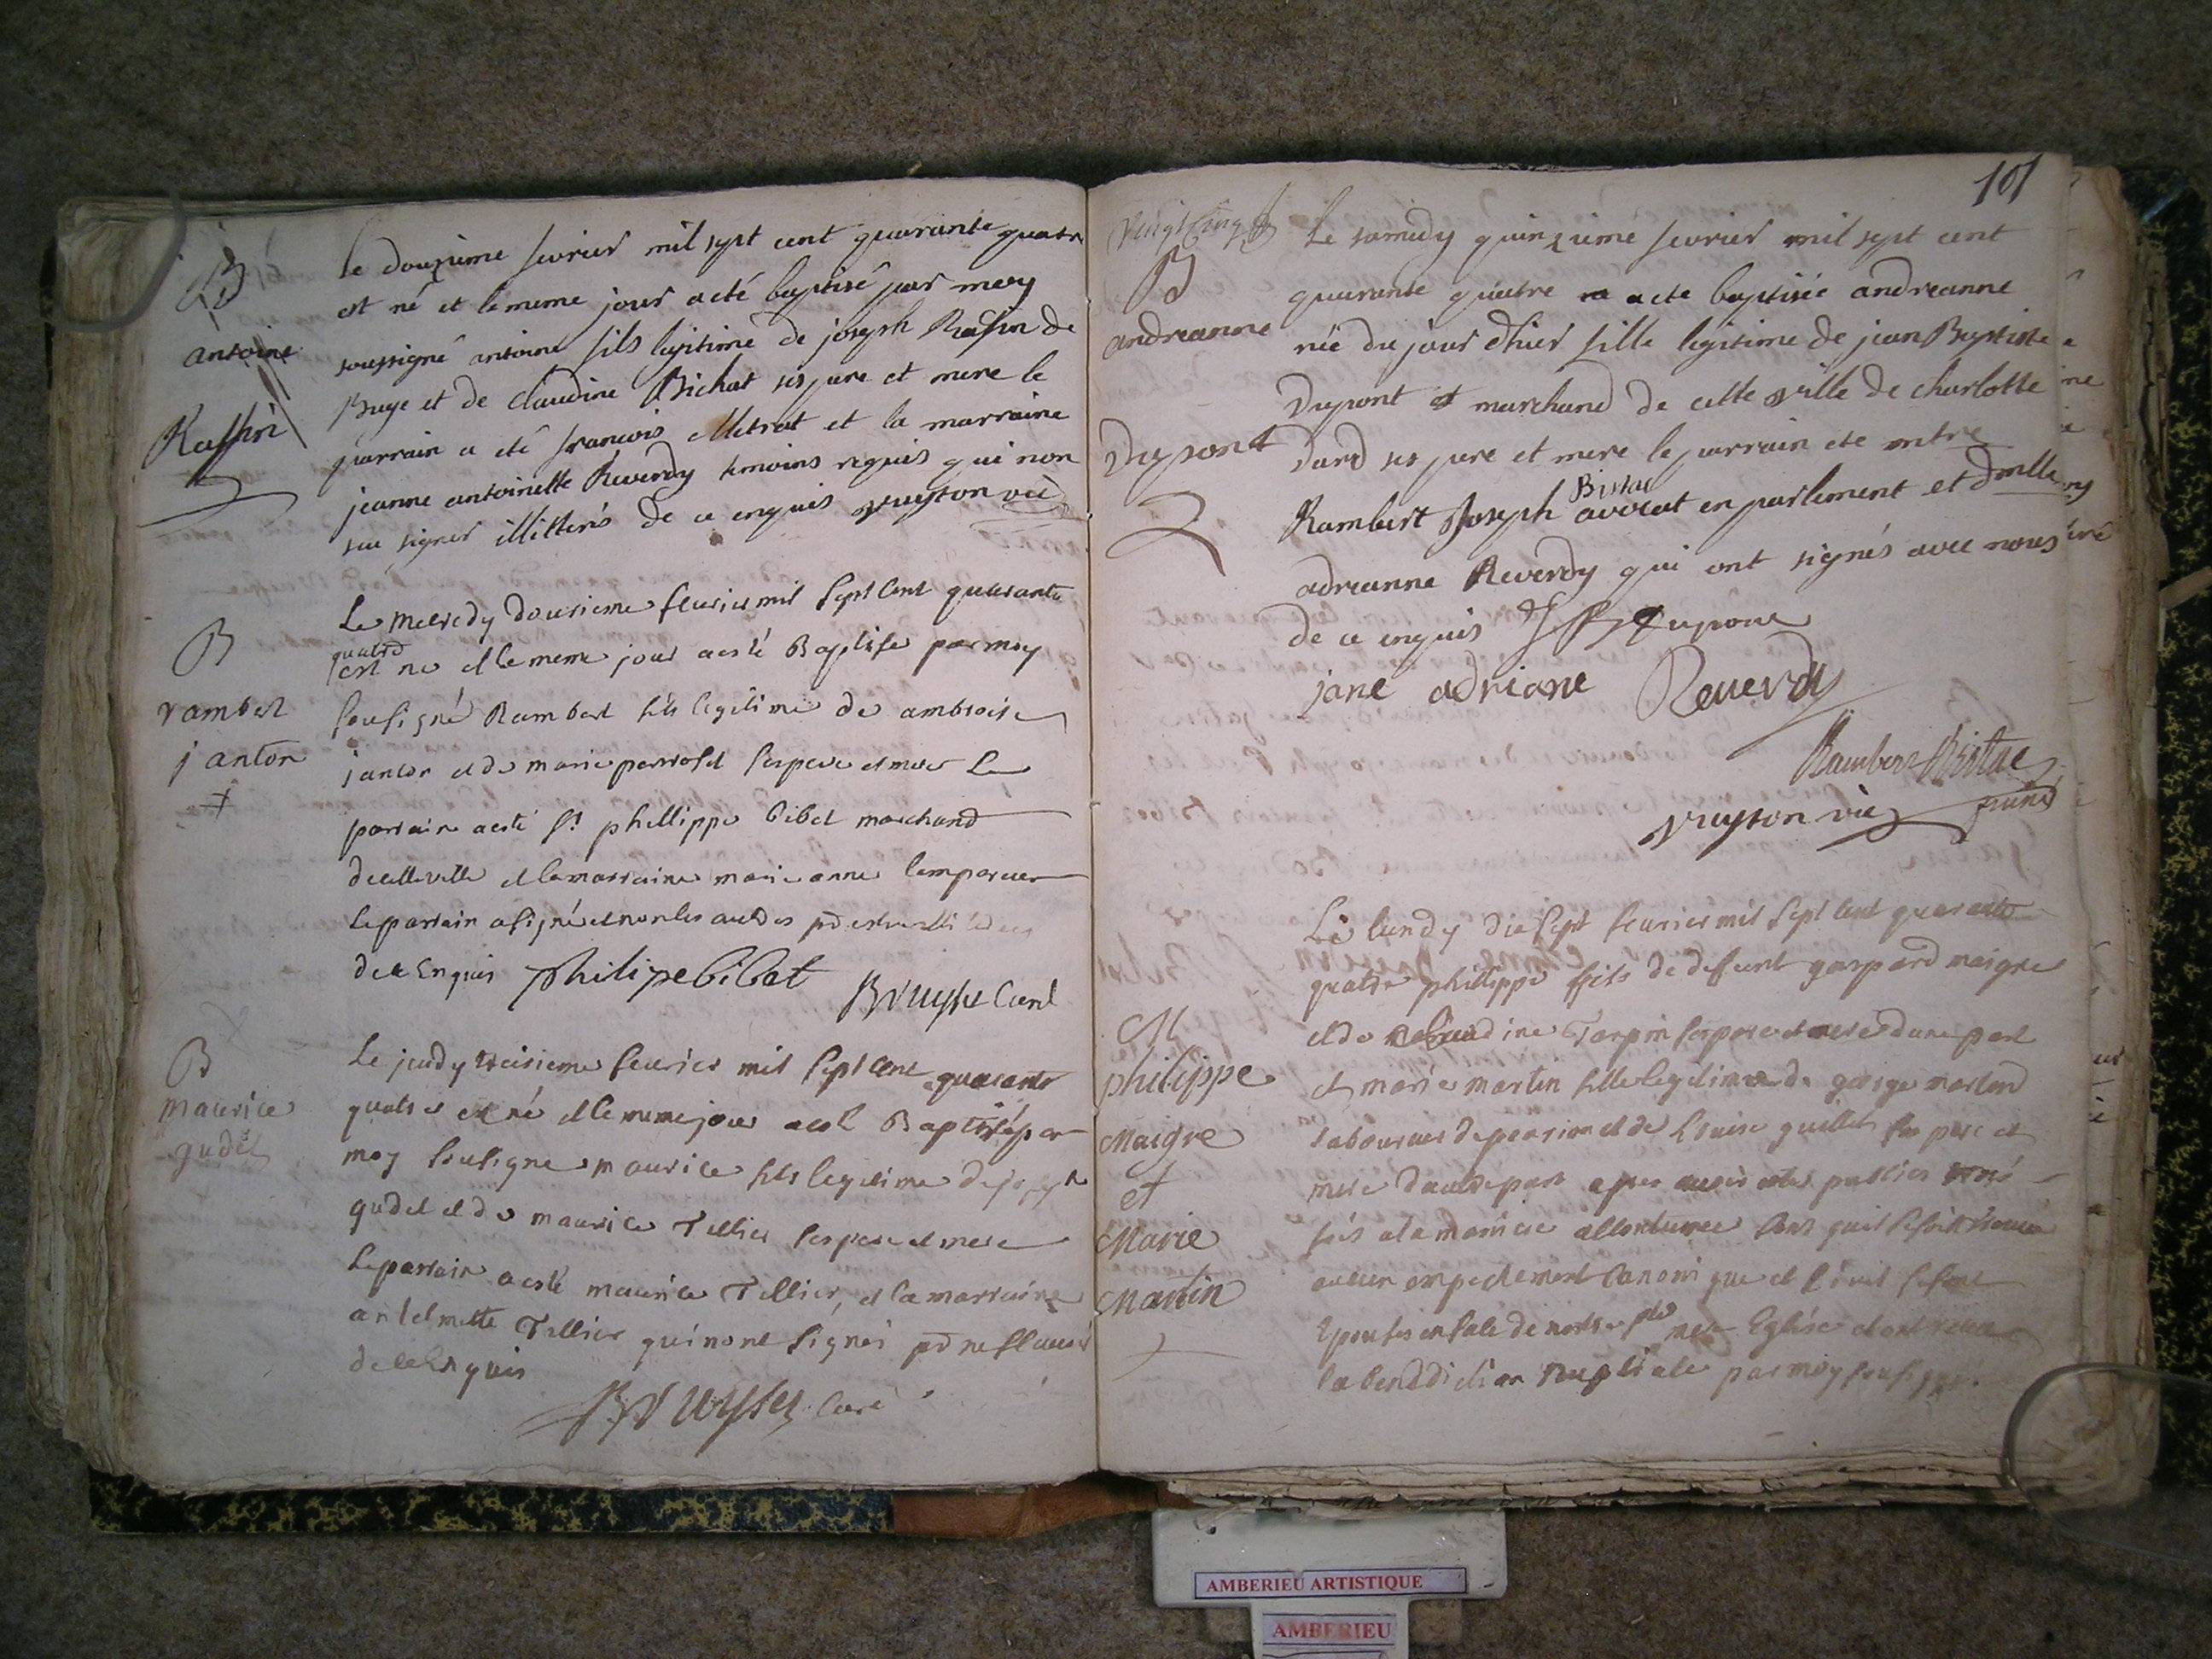 B
antoine
Rassin
le douzieme fevrier mil sept cent quarante quatre
est né et le meme jour a eté baptisé par moy
soussigné antoine fils legitime de joseph Rassin de
Buge et de claudine Bichat ses pere et mere le
parrain a eté francois Metrat et la marraine
jeanne antoinette Reverdy temoins requis qui n'ont
sue signer illitterés de ce enquis vuyton vic
B
rambert
janton
Le mecredy dousieme feurier mil sept cent quarante
quatre
est ne et le meme jour a esté Baptise par moy
sousigné Rambert fils legitime de ambroise
janton et de marie perroset ses pere et mere Le
parrain a esté sr phillippe bibet marchand
de cette ville et la marraine marie anne
le parrain a signé et non les autres
de ce Enquis philipe bibet
Curé
B
maurice
gudet
Le jeudy treisieme feurier mil sept cent quarante
quatre est né et le meme jour a esté Baptisé par
moy sousigne maurice fils legitime de joseph
gudet et de maurice Tellier ses pere et mere
Le parrain a esté maurice Tellier, et la marraine
antelmette Tellier qui n'ont signés
de ce Enquis
Curé
101
vingt cinq
B
andreanne
Dupont
Le samedy quinzieme fevrier mil sept cent
quarante quatre a ete baptisée andreanne
née du jour d'hier fille legitime de jean Baptiste
Dupont et marchand de cette ville de charlotte
Dard ses pere et mere le parrain ete mtre
Bistac
Rambert Joseph avocat en parlement et dmlle
adreanne Reverdy qui ont signés avec nous
de ce enquis J B Dupont
jane adriane Reverdy
Rambert Bistac
vuyton vic
M
philippe
Maigre
et
Marie
Martin
Le lundy die sept feurier mil sept cent quarante
quatre phillippe fils de defeunt gaspard maigre
et de Claudine Tarpin ses pere et mere d'une part
et marie martin fille legitime de george martin
laboureur de et de Louise guillet ses pere et
mere d'autre part apres avoir estes publiés trois
fois a la maniere accoutumée sans quil se soit trouvé
aucun empechement canonique et Civil se sont
Epousés en face de notre Eglise et ont receu
la benediction nuptiale par moy sousigné.
AMBERIEU ARTISTIQUE
AMBERIEU